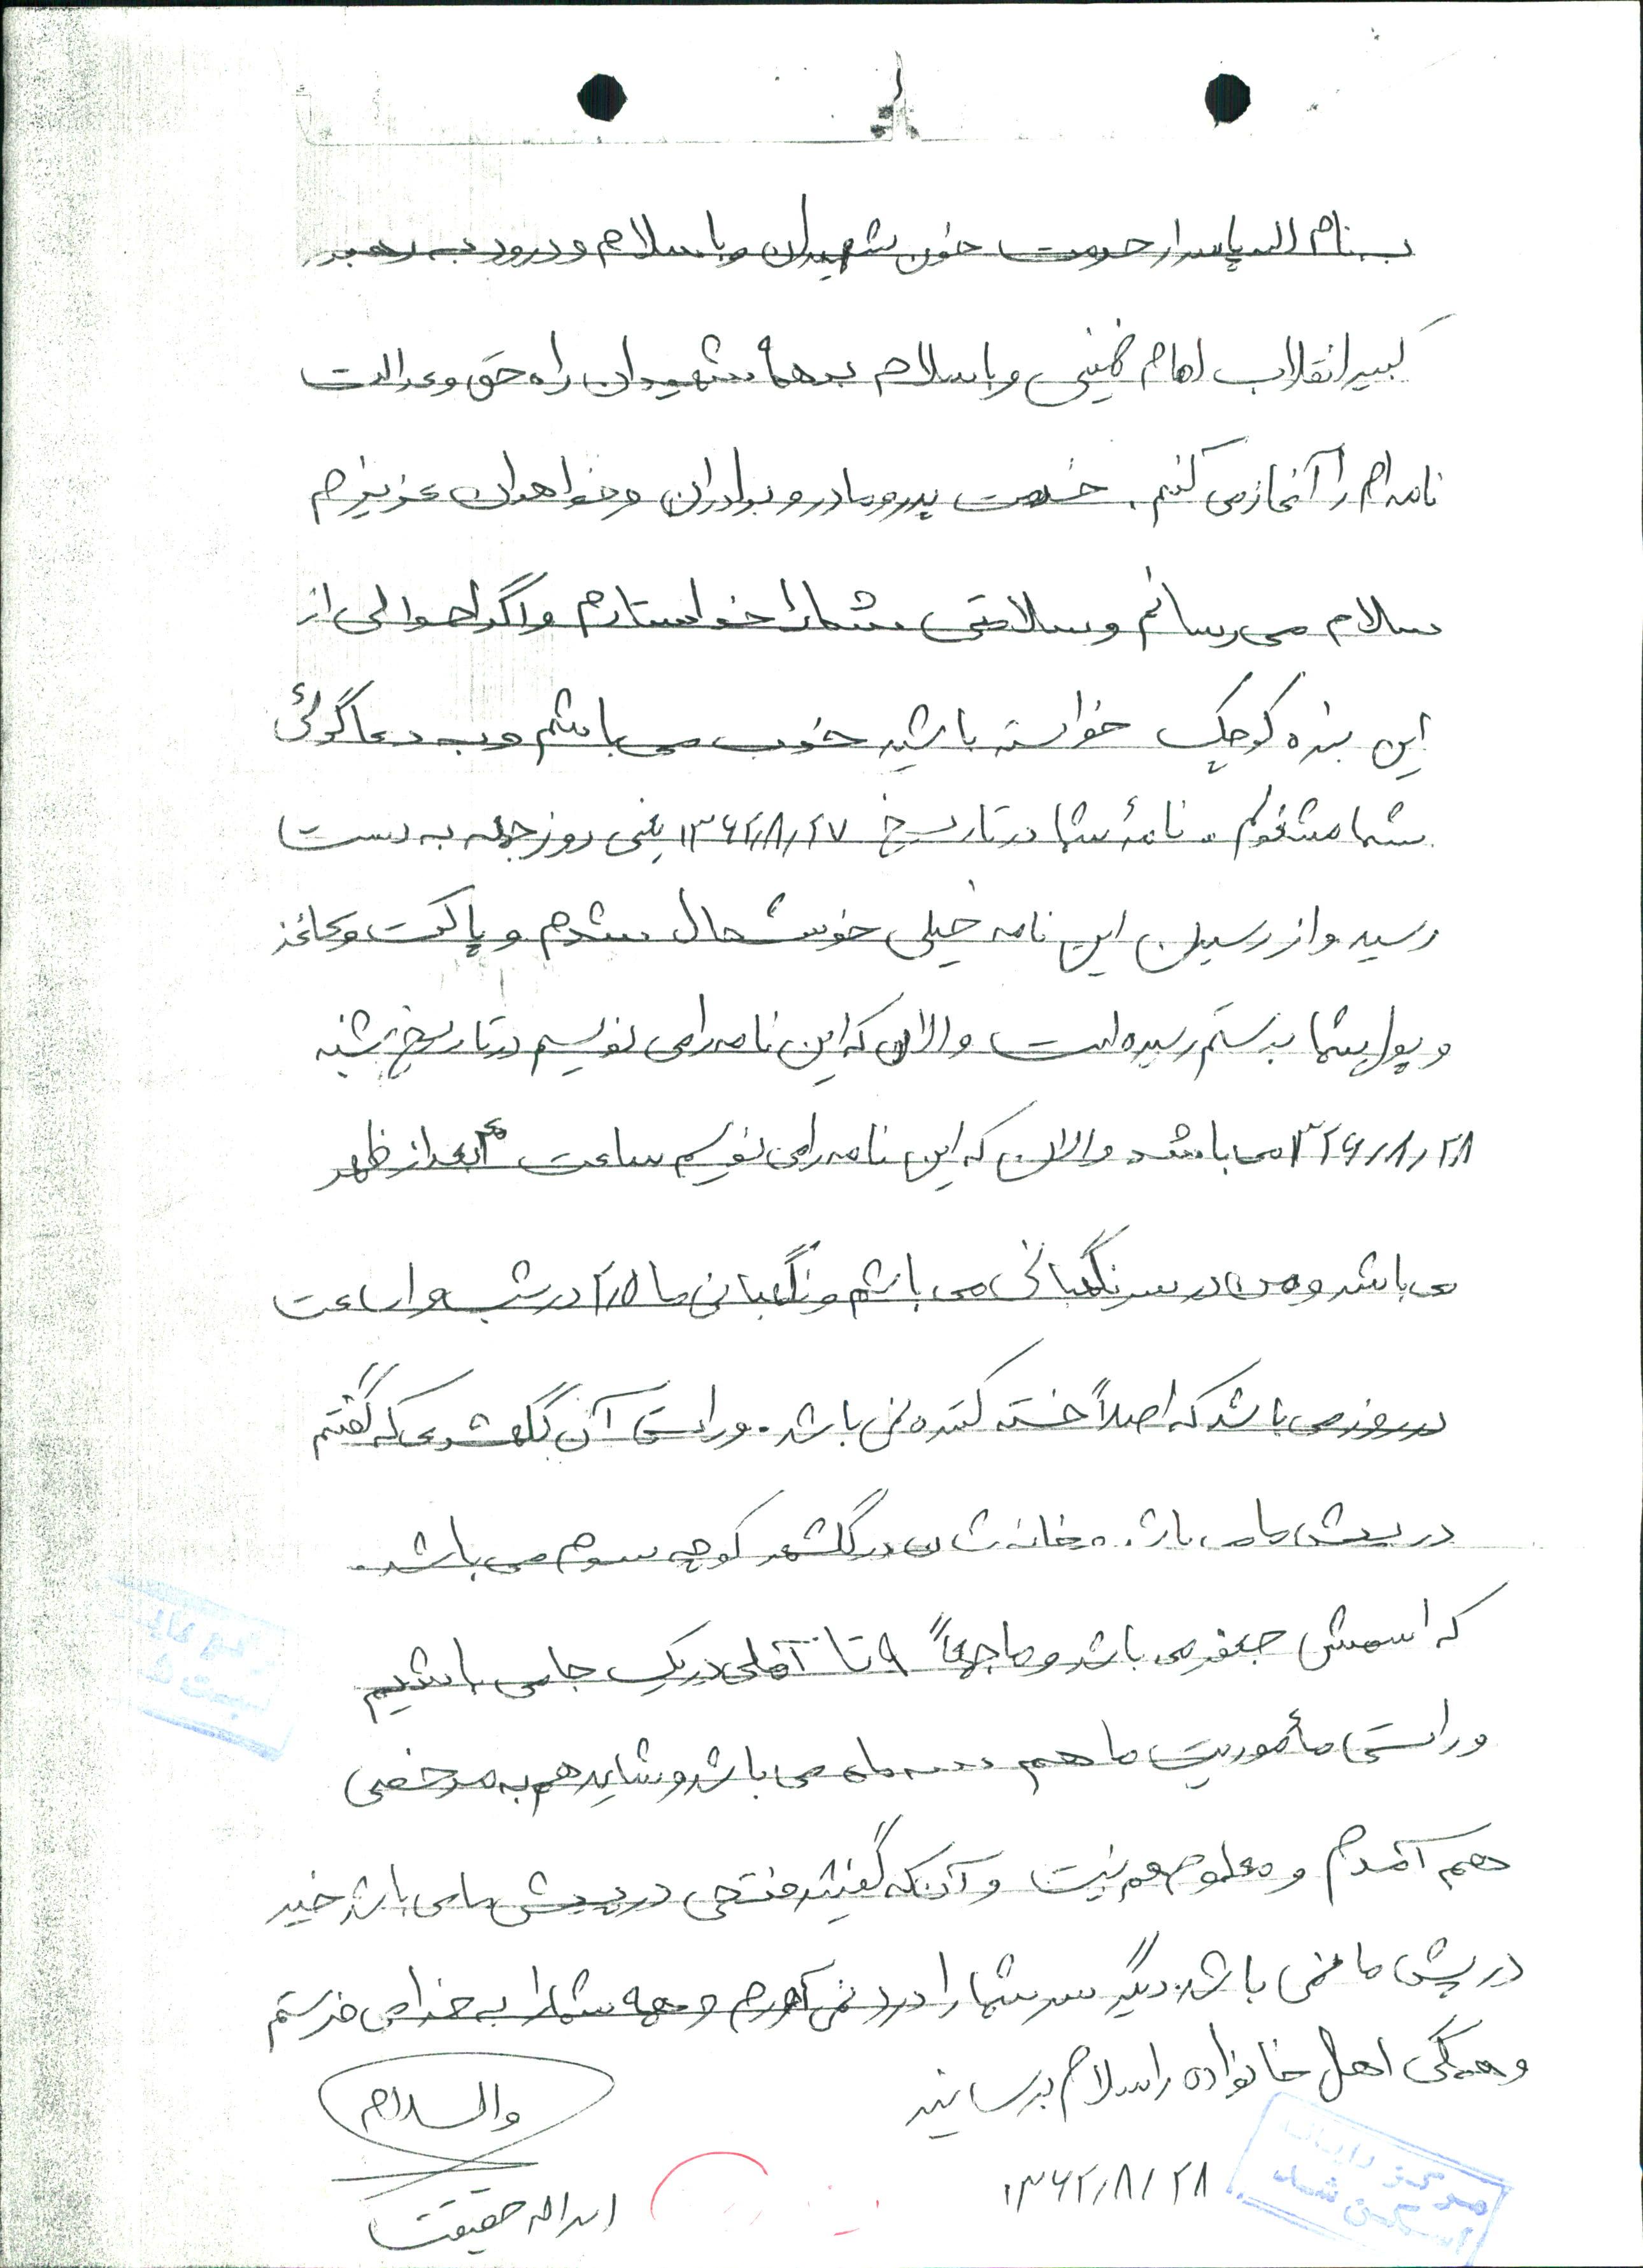 بنام الله پاسدار حرمت خون شهیدان و با سلام و درود به رهبر
کبیر انقلاب امام خمینی و با سلام به همهٔ شهیدان راه حق و عدالت
نامه ام را آغاز می کنیم. خدمت پدر و مادر و برادران و خواهران عزیزم
سلام می رسانم و سلامتی شما را خواستارم و اگر احوالی از
این بنده کوچک خواسته باشید خوب می باشم و به دعاگوئی
شما مشغولم. نامهٔ شما در تاریخ ۱۳۶۲/۸/۲۷ یعنی روز جمعه به دست
رسید و از رسیدن این نامه خیلی خوشحال شدم و پاکت و کاغذ
و پول شما بدستم رسیده است و الان که این نامه را می نویسم در تاریخ شنبه
۱۳۶۲/۸/۲۸ می باشد و الان که این نامه را می نویسم ساعت بعد از ظهر
می باشد و من در سر نگهبانی می باشم و نگهبانی ما ۲/۵ در شب و ۱ ساعت
در روز می باشد که اصلاً خسته کننده نمی باشد. و راستی آن گلشهری که گفتم
در پیش ما می باشد. خانه شان در گلشهر کوچه سوم می باشد.
که اسمش جعفر می باشد و ما جمعاً ۹ تا آملی در یک جا می باشیم
و راستی مأموریت ما هم سه ماه می باشد و شاید هم به مرخصی
هم آمدم و معلوم هم نیست و آنکه گفتید فتحی در پیش ما می باشد خیر
در پیش ما نمی باشد. دیگر سر شما را درد نمی آورم و همه شما را به خدا می فرستم
و همگی اهل خانواده را سلام برسانید
والسلام
۱۳۶۲/۸/۲۸
اسداله حقیقت
مرکز رایانه
اسکن شد